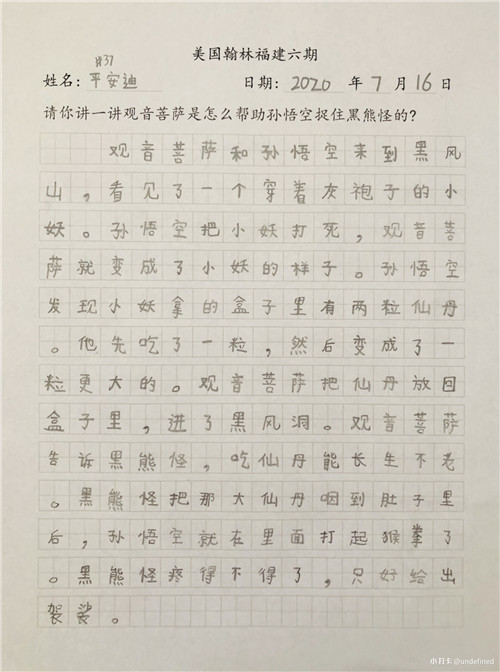 美国翰林福建六期
#37
姓名：平安迪 日期：2020 年 7 月 16 日
请你讲一讲观音菩萨是怎么帮助孙悟空捉住黑熊怪的?
观音菩萨和孙悟空来到黑风
山，看见了一个穿着灰袍子的小
妖。孙悟空把小妖打死，观音菩
萨就变成了小妖的样子。孙悟空
发现小妖拿的盒子里有两粒仙丹
。他先吃了一粒，然后变成了一
粒更大的。观音菩萨把仙丹放回
盒子里，进了黑风洞。观音菩萨
告诉黑熊怪，吃仙丹能长生不老
。黑熊怪把那大仙丹咽到肚子里
后，孙悟空就在里面打起猴拳了
。黑熊怪疼得不得了，只好给出
袈裟。
小打卡@undefined